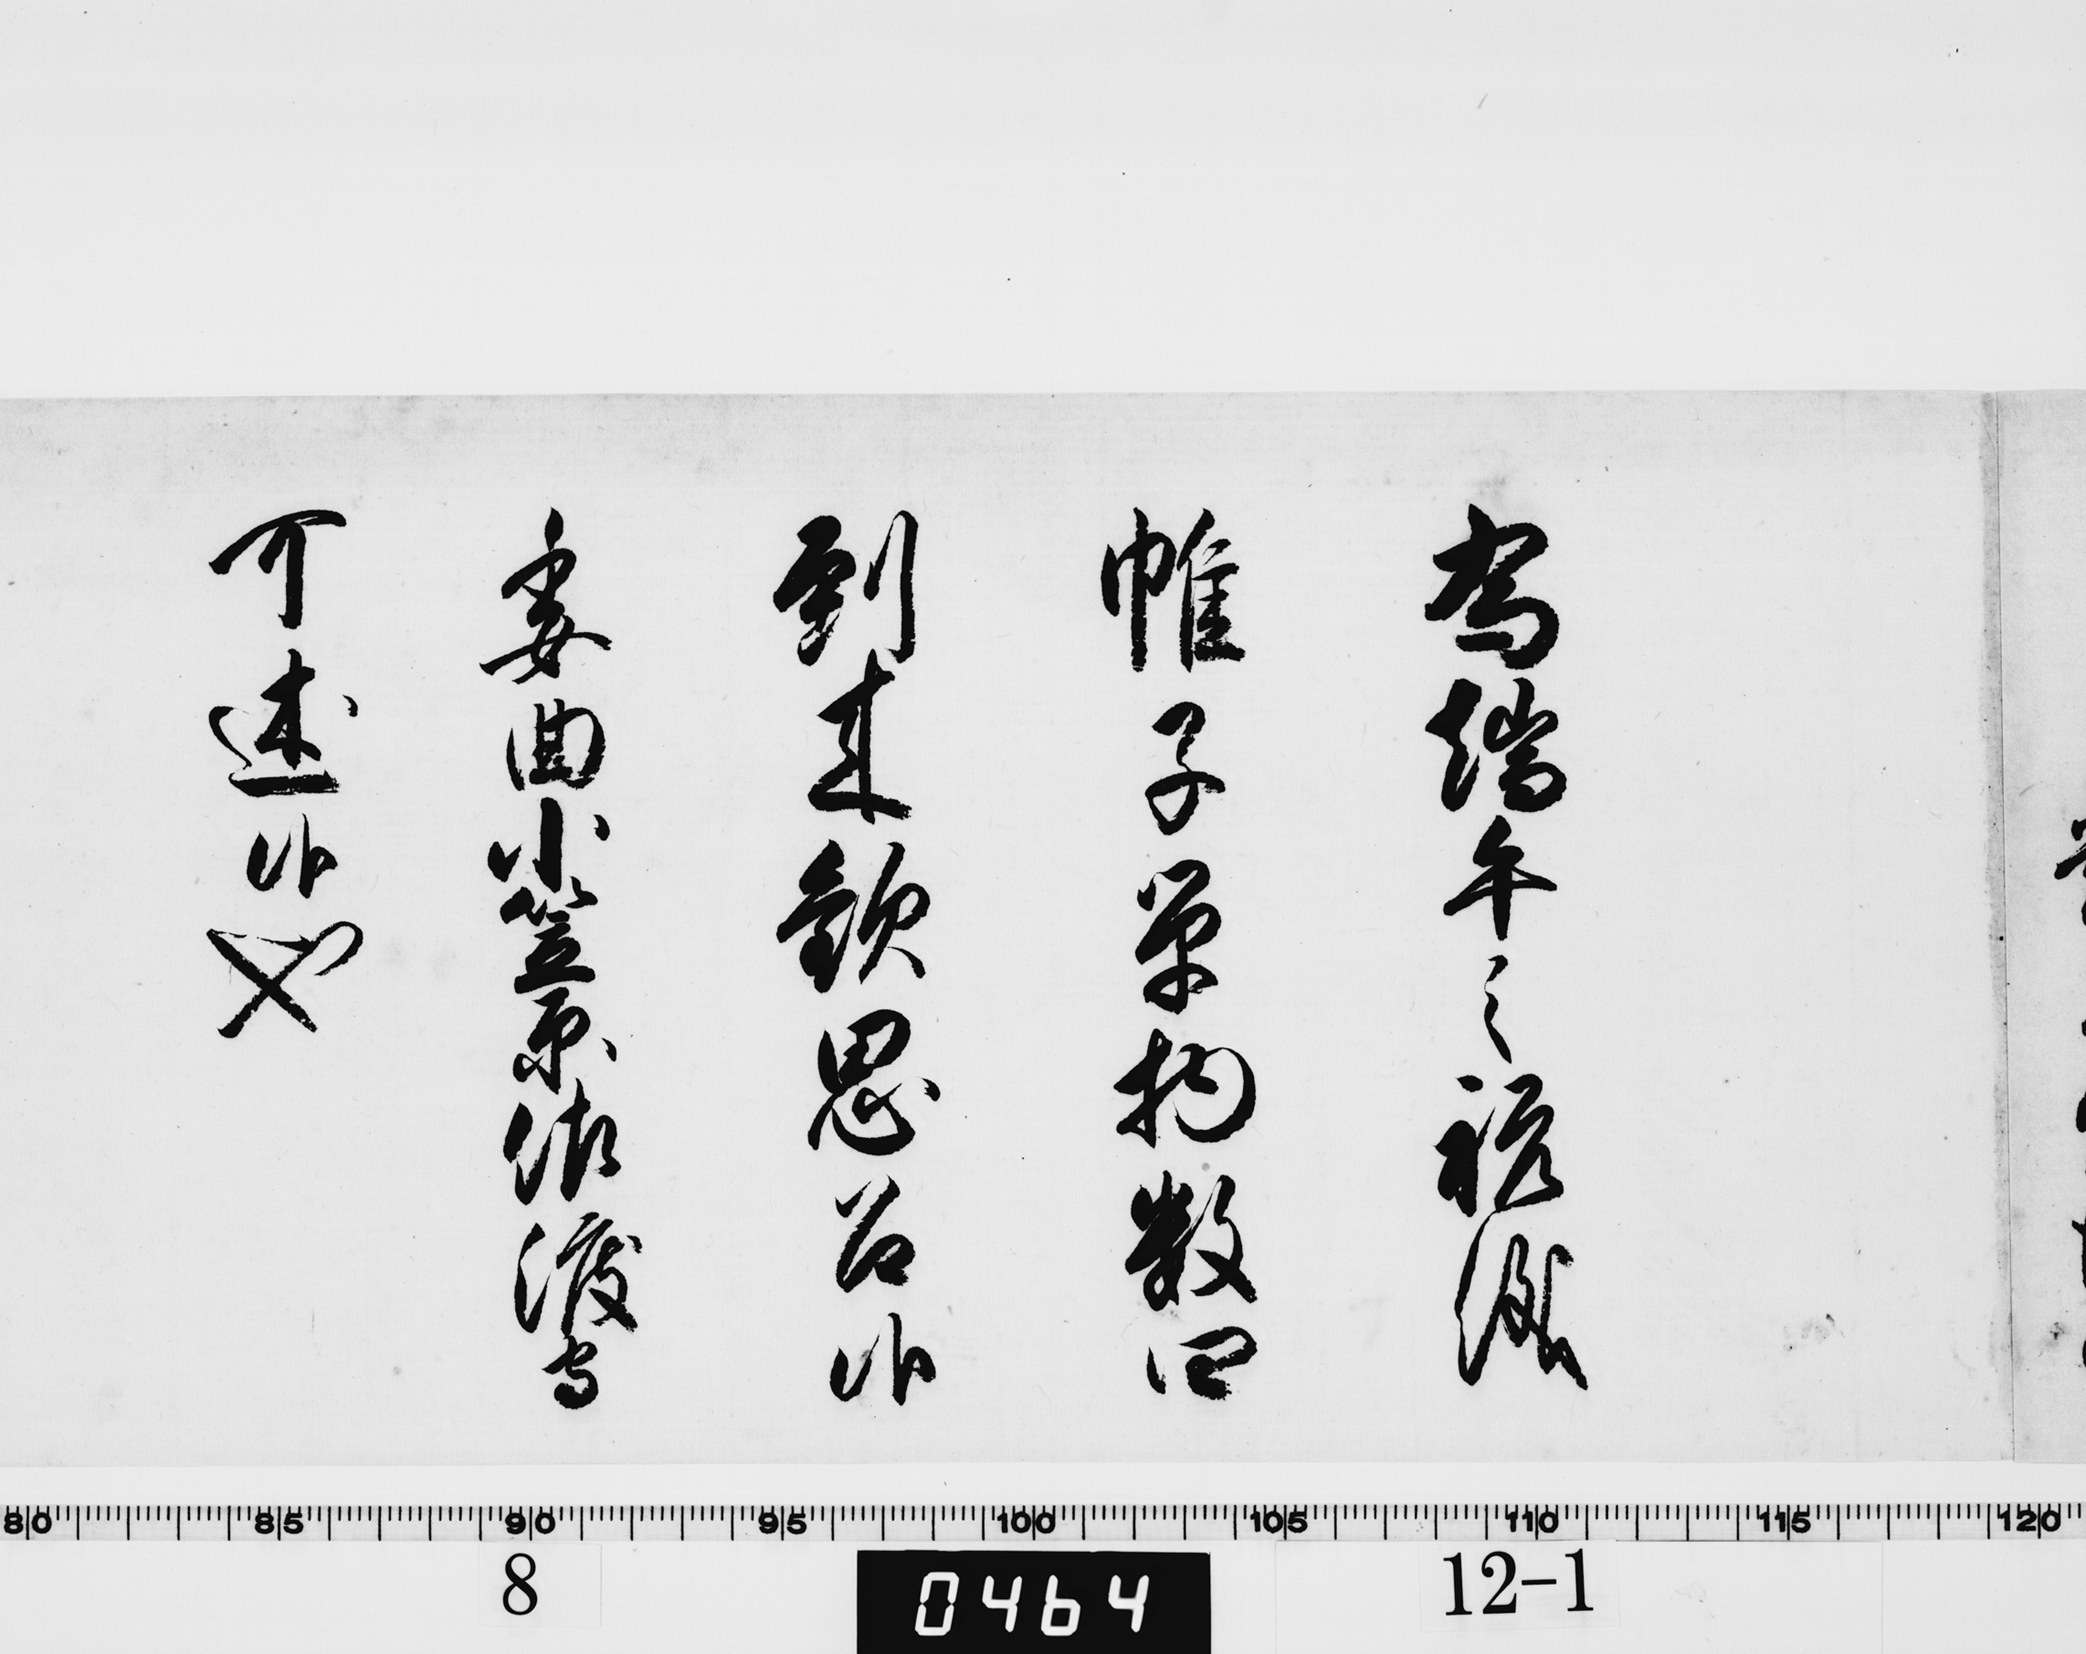 為端午之祝儀
帷子単物数四
到来歓思召候
委曲小笠原佐渡守
可述候也
80 85 90 95 100 105 110 115 120
8 0464 12-1